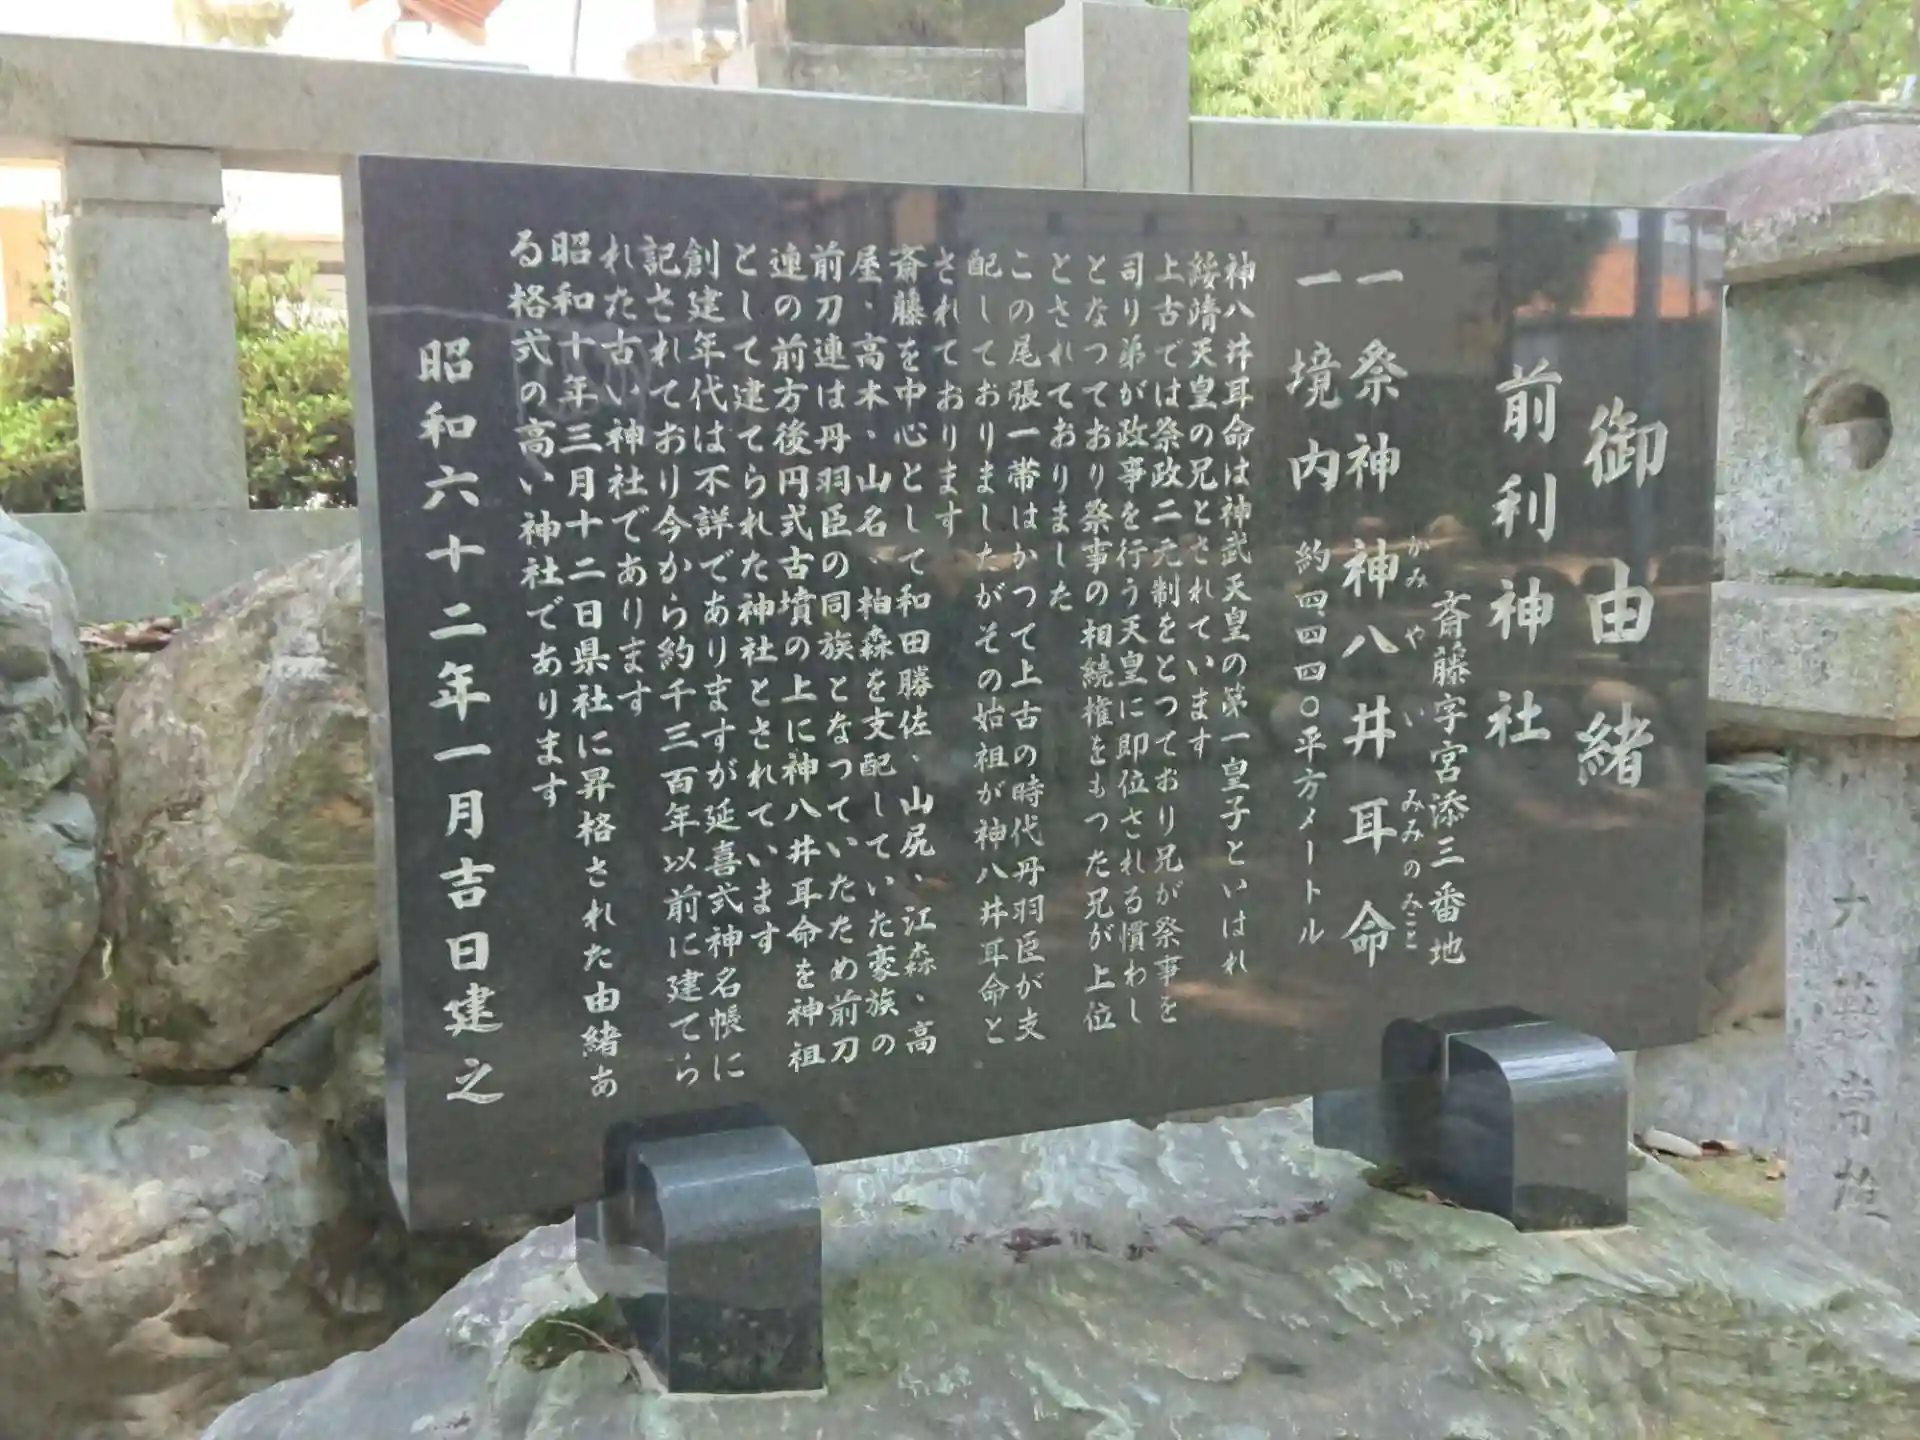 御由緒
前利神社
斎藤字宮添三番地
一祭神 神八井耳命
かみ や い みみのみこと
一境内 約四四四〇平方メートル
神八井耳命は神武天皇の第一皇子といはれ
綏靖天皇の兄とされています
上古では祭政二元制をとつており兄が祭事を
司り弟が政事を行う天皇に即位される慣わし
となつており祭事の相続権をもつた兄が上位
とされておりました
この尾張一帯はかつて上古の時代丹羽臣が支
配しておりましたがその始祖が神八井耳命と
されております
斎藤を中心として和田勝佐、山尻、江森、高
屋、高木、山名、柏森を支配していた豪族の
前刀連は丹羽臣の同族となつていたため前刀
連の前方後円式古墳の上に神八井耳命を神祖
として建てられた神社とされています
創建年代は不詳でありますが延喜式神名帳に
記されており今から約千三百年以前に建てら
れた古い神社であります
昭和十年三月十二日県社に昇格された由緒あ
る格式の高い神社であります
昭和六十二年一月吉日建之